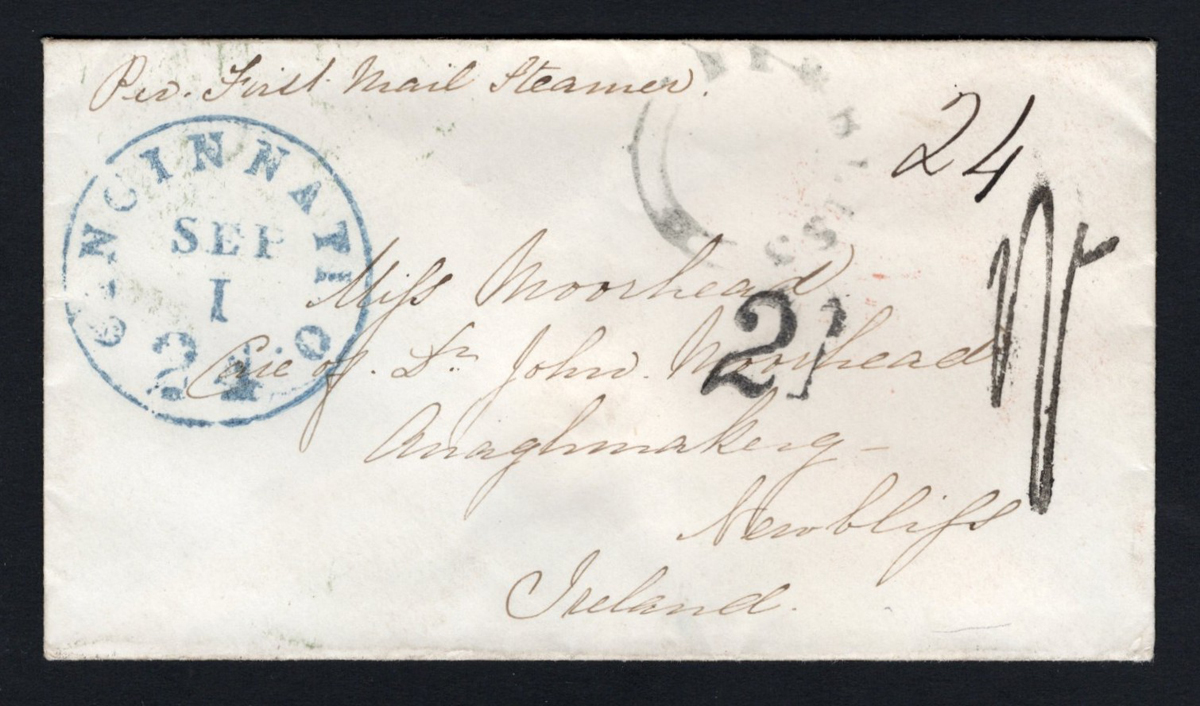 Per. First Mail Steamer.
24
CINCINNATI O
SEP
1
24
21
Miss Moorhead
Care of. Dr. John. Moorhead
Anaghmakerg -
Newbliss
Ireland.